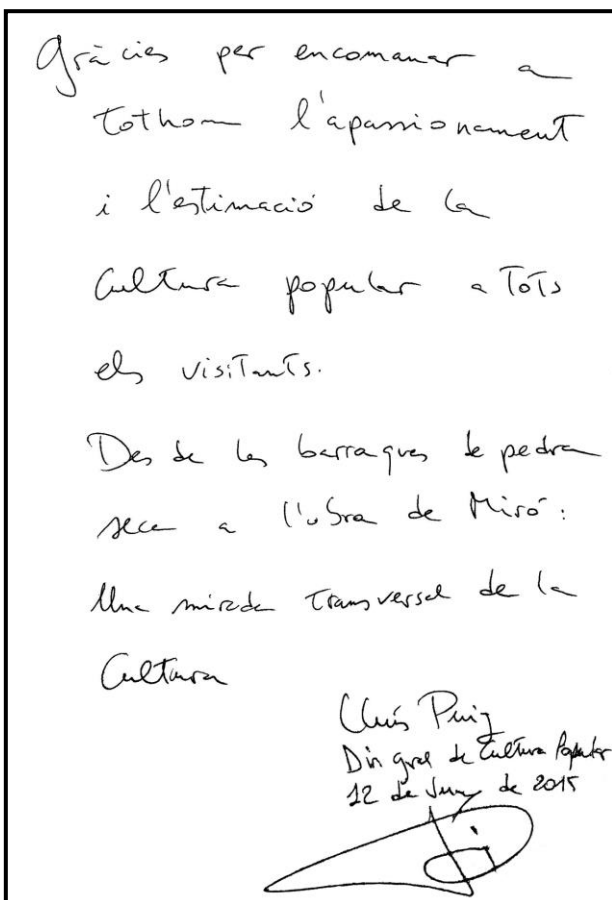 Gràcies per encomanar a
tothom l'apassionament
i l'estimació de la
Cultura popular a Tots
els visitants.
Des de les barraques de pedra
seca a l'obra de Miró:
Una mirada transversal de la
Cultura
Lluís Puig
Dir gral de Cultura Popular
12 de Juny de 2015